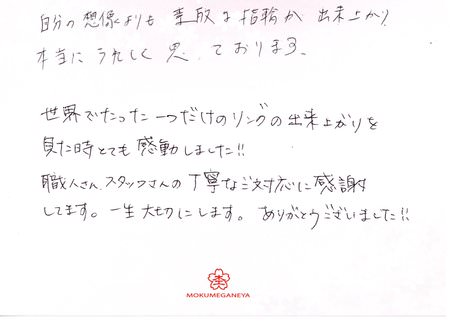 自分の想像よりも素敵な指輪が出来上がり
本当にうれしく思っております。
世界でたった一つだけのリングの出来上がりを
見た時とても感動しました!!
職人さん、スタッフさんの丁寧なご対応に感謝
してます。一生大切にします。ありがとうございました!!
MOKUMEGANEYA